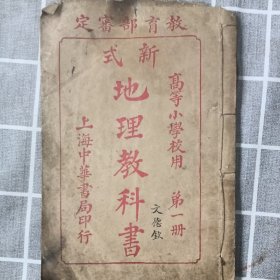 教育部審定
高等小學校用 第一冊
新式
地理教科書
上海中華書局印行